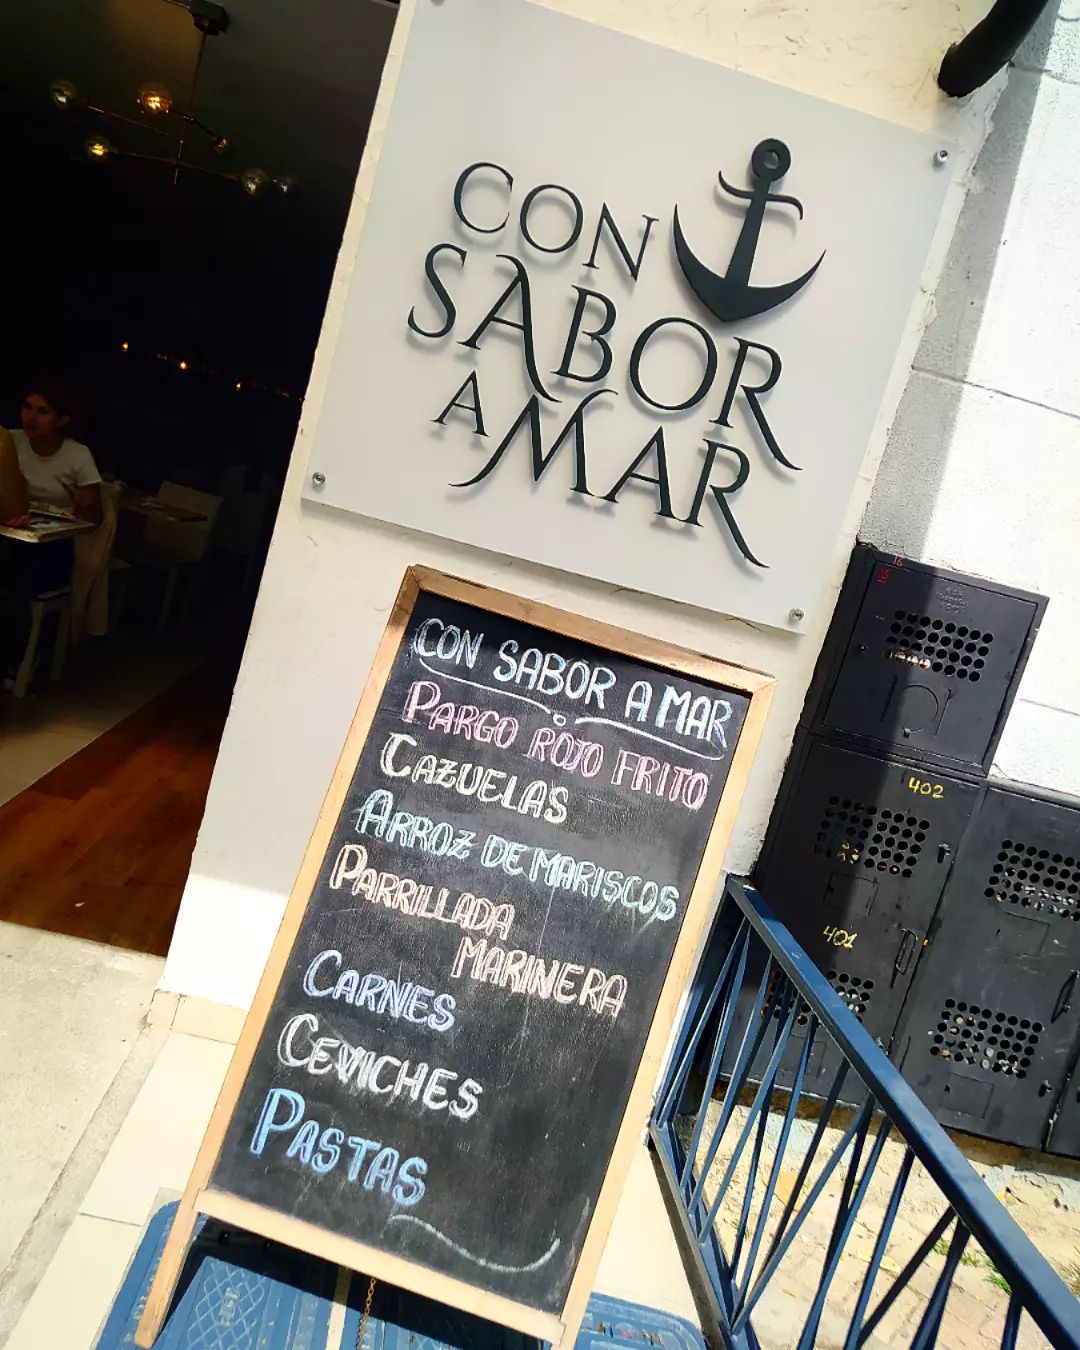 CON
SABOR
A MAR
CON SABOR A MAR
PARGO ROJO FRITO
CAZUELAS
ARROZ DE MARISCOS
PARRILLADA
MARINERA
CARNES
CEVICHES
PASTAS
402
401